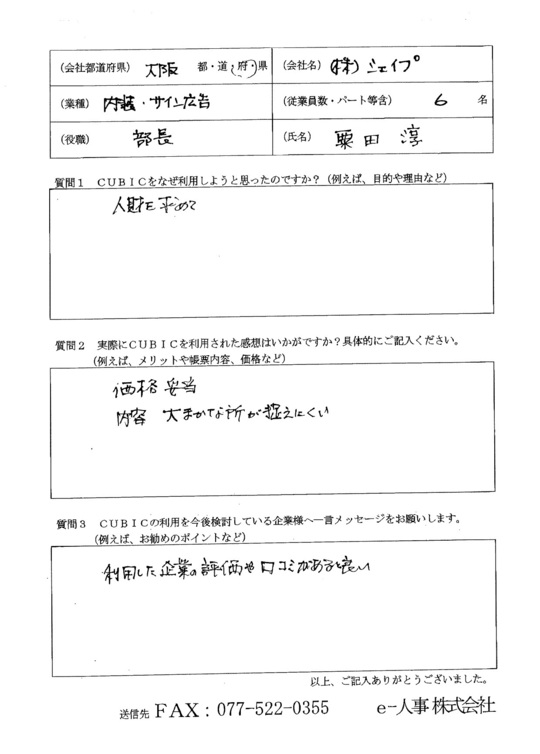 (会社都道府県) 大阪 都・道・府・県 (会社名) (株)シェイプ
(業種) 内装・サイン広告 (従業員数・パート等含) 6 名
(役職) 部長 (氏名) 粟田 淳
質問1 CUBICをなぜ利用しようと思ったのですか?(例えば、目的や理由など)
人財を求めて
質問2 実際にCUBICを利用された感想はいかがですか?具体的にご記入ください。
(例えば、メリットや帳票内容、価格など)
価格 妥当
内容 大まかな所が捉えにくい
質問3 CUBICの利用を今後検討している企業様へ一言メッセージをお願いします。
(例えば、お勧めのポイントなど)
利用した企業の評価や口コミがあると良い
以上、ご記入ありがとうございました。
送信先 FAX:077-522-0355 e-人事株式会社